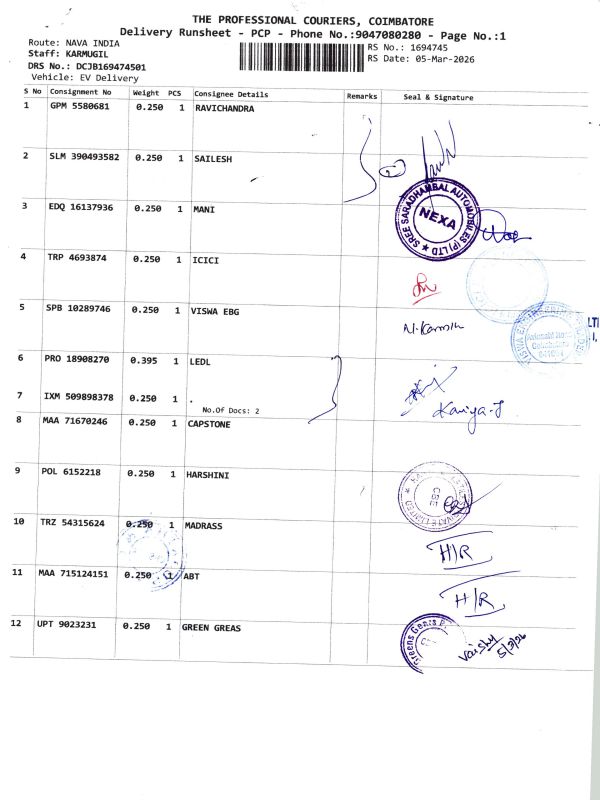 THE PROFESSIONAL COURIERS, COIMBATORE
Delivery Runsheet - PCP - Phone No.:9047080280 - Page No.:1
Route: NAVA INDIA
RS No.: 1694745
Staff: KARMUGIL
RS Date: 05-Mar-2026
DRS No.: DCJB169474501
Vehicle: EV Delivery
S No Consignment No Weight PCS Consignee Details Remarks Seal & Signature
1 GPM 5580681 0.250 1 RAVICHANDRA
2 SLM 390493582 0.250 1 SAILESH
3 EDQ 16137936 0.250 1 MANI
SREE SARADHAMBAL AUTOMOBILES (P) LTD
NEXA
4 TRP 4693874 0.250 1 ICICI
5 SPB 10289746 0.250 1 VISWA EBG
6 PRO 18908270 0.395 1 LEDL
7 IXM 509898378 0.250 1 .
No.Of Docs: 2
8 MAA 71670246 0.250 1 CAPSTONE
9 POL 6152218 0.250 1 HARSHINI
CBE
10 TRZ 54315624 0.250 1 MADRASS
H/R
11 MAA 715124151 0.250 1 ABT
H/R
12 UPT 9023231 0.250 1 GREEN GREAS
Vaishy
5/3/26